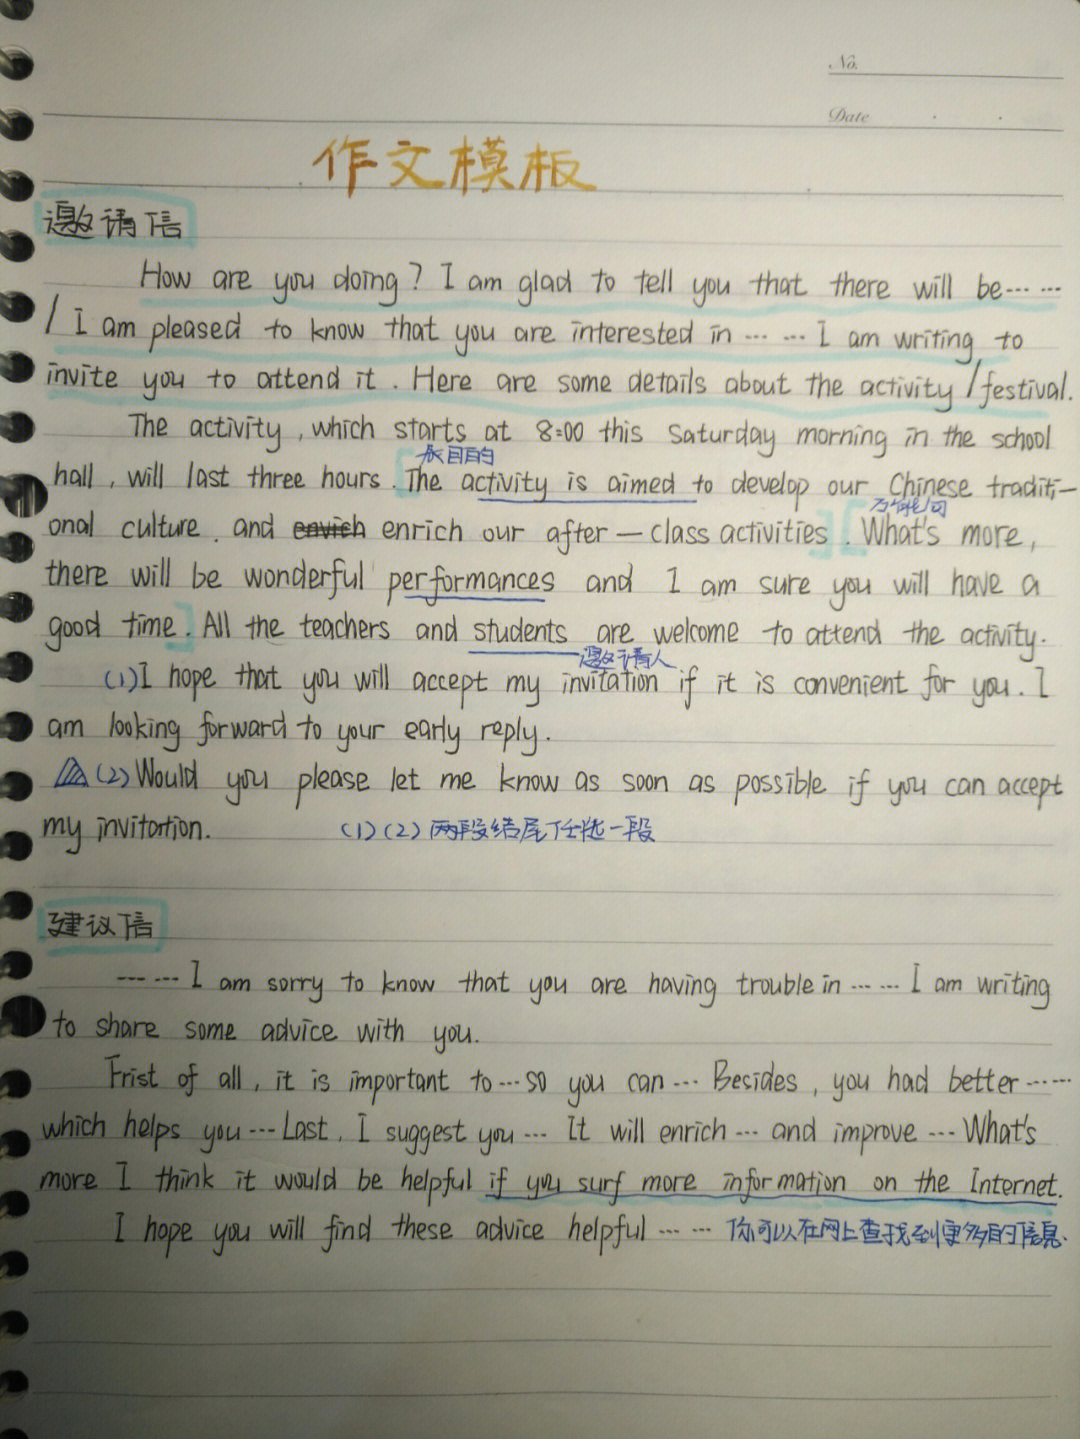 No.
Date
作文模板
邀请信
How are you doing? I am glad to tell you that there will be…… 
/ I am pleased to know that you are interested in …… I am writing to
invite you to attend it. Here are some details about the activity/festival.
The activity, which starts at 8:00 this Saturday morning in the school
表目的
hall, will last three hours. The activity is aimed to develop our Chinese traditi-
万能句
onal culture, and envich enrich our after-class activities. What's more,
there will be wonderful performances and I am sure you will have a
good time. All the teachers and students are welcome to attend the activity.
邀请人
(1) I hope that you will accept my invitation if it is convenient for you. I
am looking forward to your early reply.
(2) Would you please let me know as soon as possible if you can accept
my invitation. (1)(2)两段结尾任选一段
建议信
…… I am sorry to know that you are having trouble in …… I am writing
to share some advice with you.
Frist of all, it is important to … so you can … Besides, you had better ……
which helps you … Last, I suggest you … It will enrich … and improve … What's
more I think it would be helpful if you surf more information on the Internet.
I hope you will find these advice helpful …… 你可以在网上查找到更多的信息.